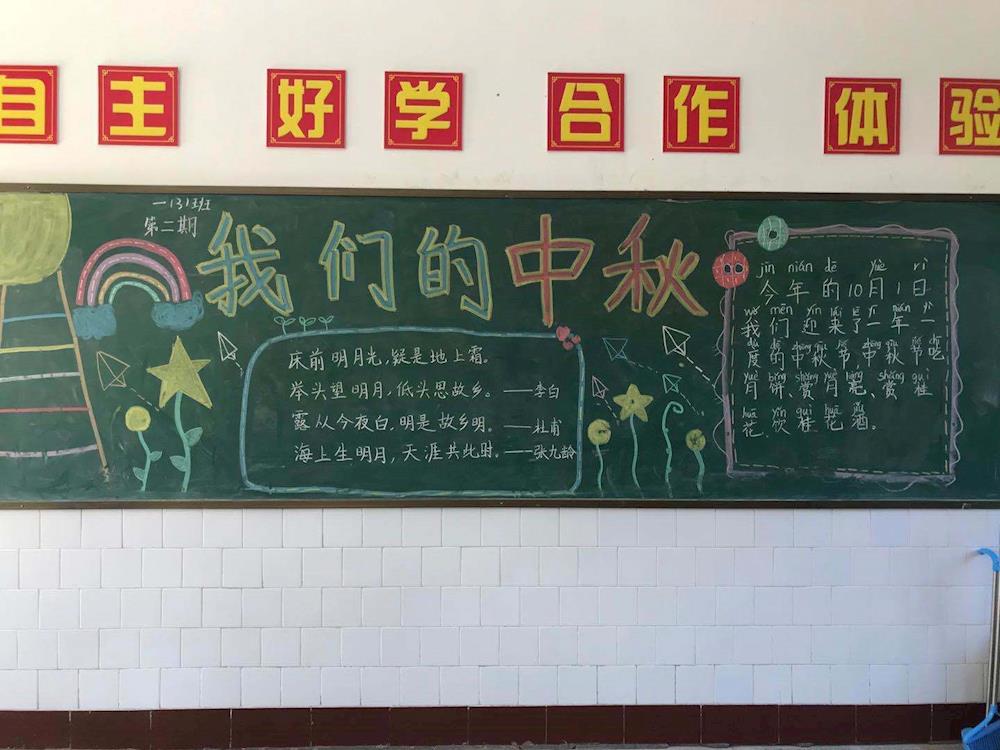 自主 好学 合作 体验
一131班
第二期
我们的中秋
床前明月光,疑是地上霜。
举头望明月,低头思故乡。——李白
露从今夜白,明是故乡明。——杜甫
海上生明月,天涯共此时。——张九龄
jīn nián de yuè rì
今年的10月1日
wǒ mēn yín lái le yī nián yī
我们迎来了一年一
dù de zhōng qiū jié zhōng qiū jié chī
度的中秋节,中秋节吃
yuè bǐng shǎng yuè liàng shǎng guì
月饼、赏月亮、赏桂
huā yǐn guì huā jiǔ
花、饮桂花酒。